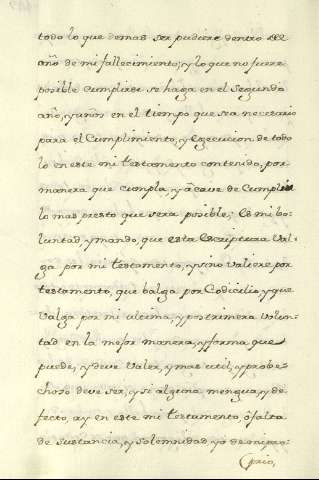 todo lo que demas ser pudiere dentro del
año de mi fallecimiento; y lo que no fuere
posible cumplirse se haga en el segundo
año, y años en el tiempo que sea necesario
para el Cumplimiento, y Egecucion de todo
lo en este mi testamento contenido, por
manera que cumpla, y acave de Cumplir
lo mas presto que sera posible; Es mi bo-
luntad, y mando, que esta Escriptura Val-
ga por mi testamento, y sino valiere por
testamento, que balga por Codicilio, y que
Valga por mi ultima, y postrimera Volun-
tad en la mejor manera, y forma que
puede, y deve Valer, y mas util, y probe-
choso deve ser, y si alguna mengua, y de-
fecto, ay en este mi testamento, ó falta
de sustancia, y solemnidad yo de mi pro-
prio,